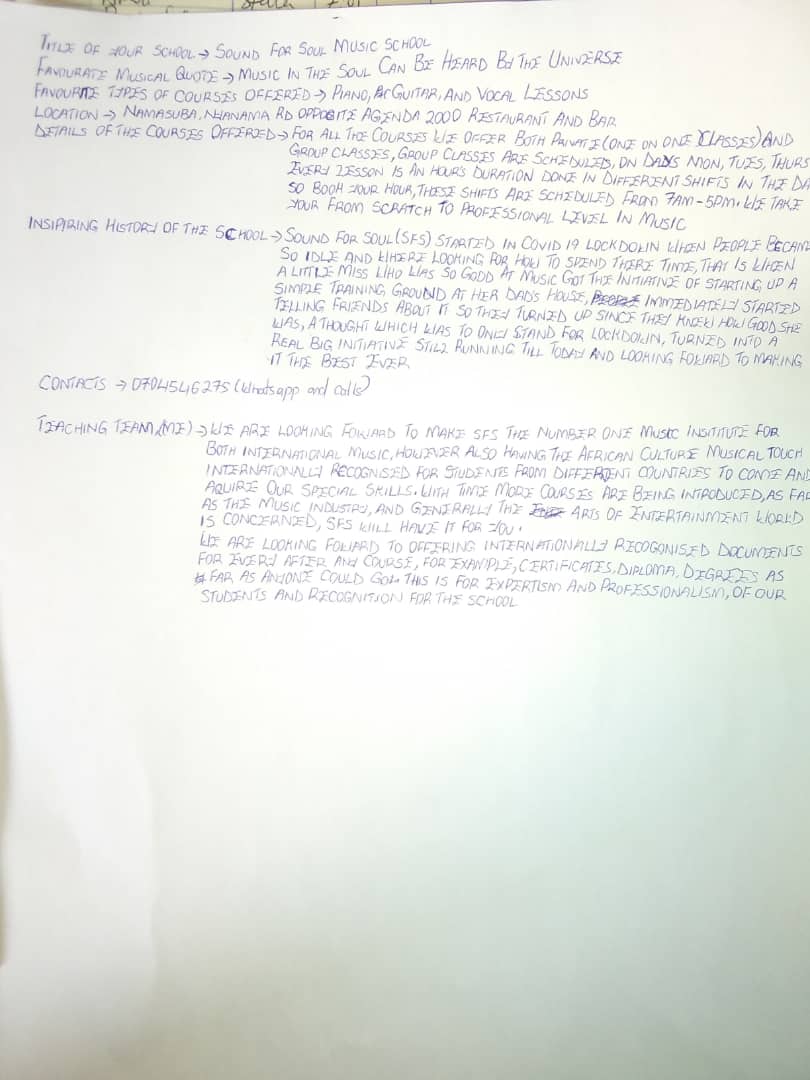 TITLE OF YOUR SCHOOL → SOUND FOR SOUL MUSIC SCHOOL
FAVOURATE MUSICAL QUOTE → MUSIC IN THE SOUL CAN BE HEARD BY THE UNIVERSE
FAVOURITE TYPES OF COURSES OFFERED → PIANO, GUITAR, AND VOCAL LESSONS
LOCATION → NAMASUBA, NYANAMA RD OPPOSITE AGENDA 2000 RESTAURANT AND BAR
DETAILS OF THE COURSES OFFERED → FOR ALL THE COURSES WE OFFER BOTH PRIVATE (ONE ON ONE CLASSES) AND
GROUP CLASSES, GROUP CLASSES ARE SCHEDULED, ON DAYS MON, TUES, THURS
EVERY LESSON IS AN HOUR'S DURATION DONE IN DIFFERENT SHIFTS IN THE DA
SO BOOK YOUR HOUR, THESE SHIFTS ARE SCHEDULED FROM 7AM - 5PM. WE TAKE
YOUR FROM SCRATCH TO PROFESSIONAL LEVEL IN MUSIC
INSIPIRING HISTORY OF THE SCHOOL → SOUND FOR SOUL (SFS) STARTED IN COVID 19 LOCKDOWN WHEN PEOPLE BECAME
SO IDLE AND WHERE LOOKING FOR HOW TO SPEND THERE TIME, THAT IS WHEN
A LITTLE MISS WHO WAS SO GOOD AT MUSIC GOT THE INITIATIVE OF STARTING UP A
SIMPLE TRAINING GROUND AT HER DAD'S HOUSE, PEOPLE IMMEDIATELY STARTED
TELLING FRIENDS ABOUT IT SO THEY TURNED UP SINCE THEY KNEW HOW GOOD SHE
WAS, A THOUGHT WHICH WAS TO ONLY STAND FOR LOCKDOWN, TURNED INTO A
REAL BIG INITIATIVE STILL RUNNING TILL TODAY AND LOOKING FOWARD TO MAKING
IT THE BEST EVER
CONTACTS → 0704546275 (Whatsapp and calls)
TEACHING TEAM (ME) → WE ARE LOOKING FOWARD TO MAKE SFS THE NUMBER ONE MUSIC INSITITUTE FOR
BOTH INTERNATIONAL MUSIC, HOWEVER ALSO HAVING THE AFRICAN CULTURE MUSICAL TOUCH
INTERNATIONALLY RECOGNISED FOR STUDENTS FROM DIFFERENT COUNTRIES TO COME AND
AQUIRE OUR SPECIAL SKILLS. WITH TIME MORE COURSES ARE BEING INTRODUCED, AS FAR
AS THE MUSIC INDUSTRY, AND GENERALLY THE ARTS OF ENTERTAINMENT WORLD
IS CONCERNED, SFS WILL HAVE IT FOR YOU.
WE ARE LOOKING FOWARD TO OFFERING INTERNATIONALLY RECOGONISED DOCUMENTS
FOR EVERY AFTER ANY COURSE, FOR EXAMPLE, CERTIFICATES, DIPLOMA, DEGREES AS
FAR AS ANYONE COULD GO. THIS IS FOR EXPERTISM AND PROFESSIONALISM, OF OUR
STUDENTS AND RECOGNITION FOR THE SCHOOL